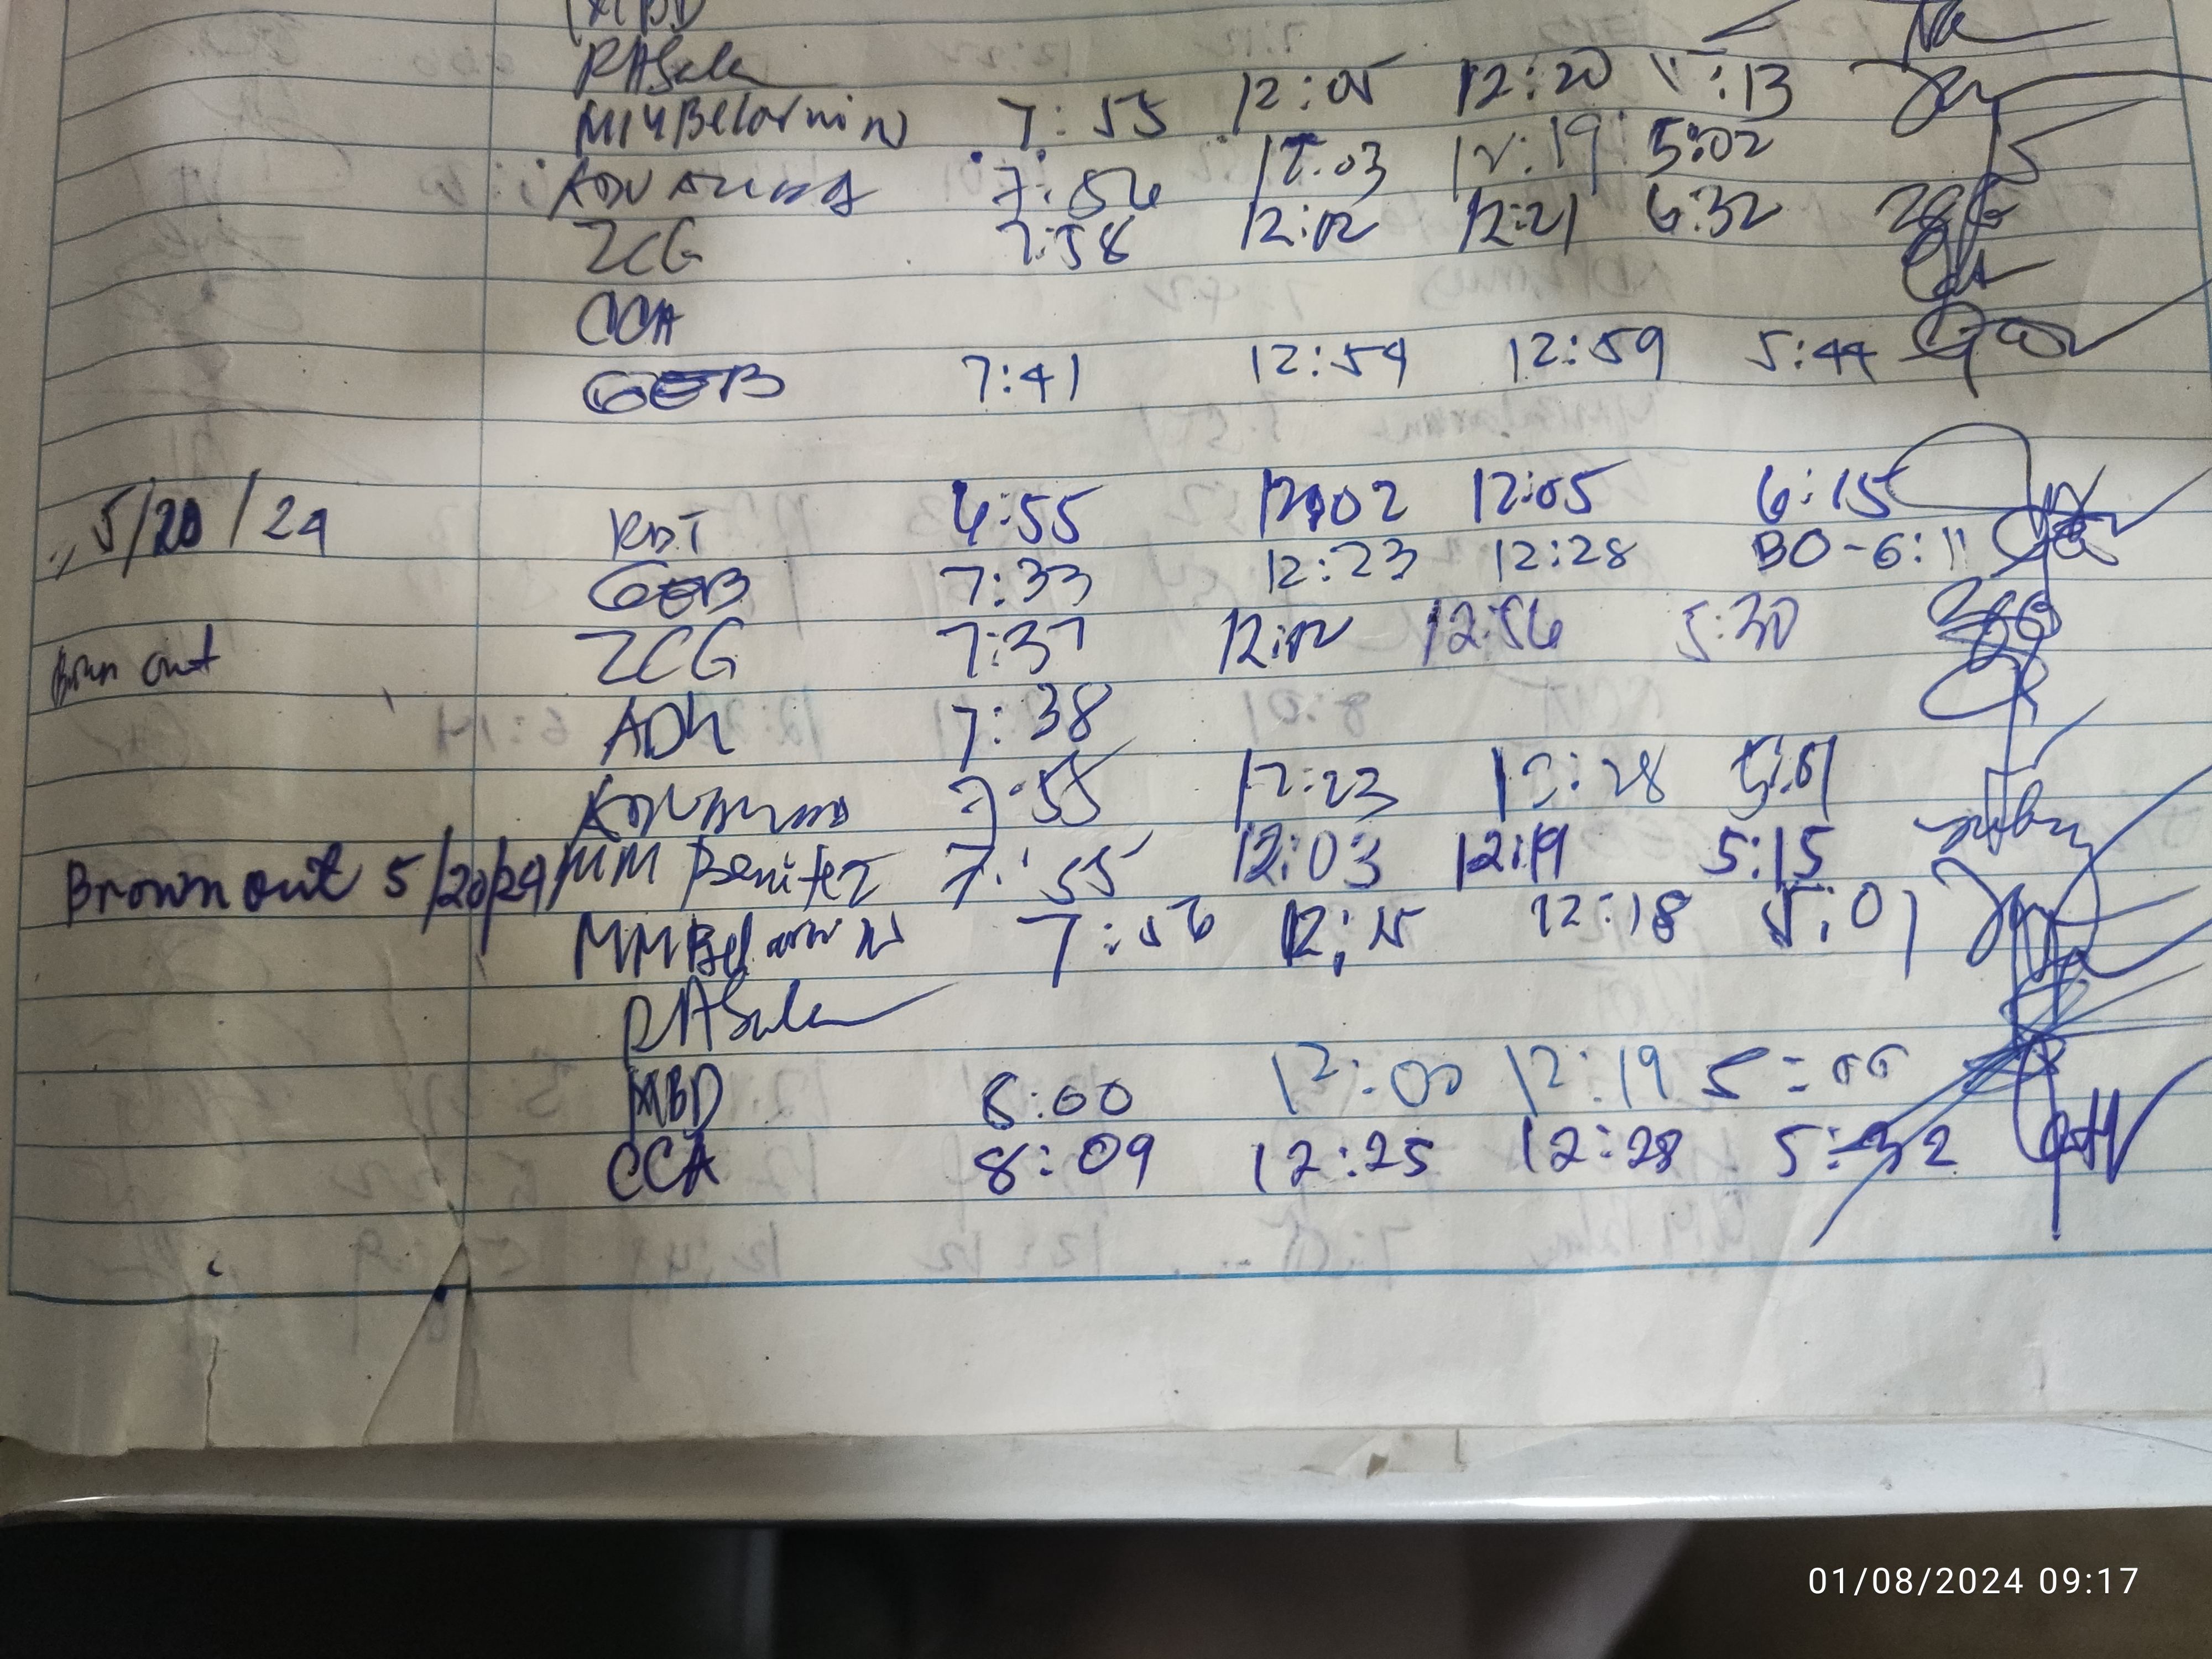 MBD
RASula
MMBelarmin 7:55 12:05 12:20 5:13
7:56 12:03 12:19 5:02
ZCG 7:58 12:12 12:21 6:32
CCA
GEB 7:41 12:59 12:59 5:44
5/20/24 RDT 6:55 12:02 12:05 6:15
GEB 7:33 12:23 12:28 BO-6:11
Brown out ZCG 7:37 12:12 12:56 5:30
ADK 7:38
7:55 12:23 12:28 5:01
Brown out 5/20/24 MM Benitez 7:55 12:03 12:19 5:15
MMBelarmin 7:56 12:15 12:18 5:01
RASula
MBD 8:00 12:00 12:19 5:00
CCA 8:09 12:25 12:28 5:32
01/08/2024 09:17